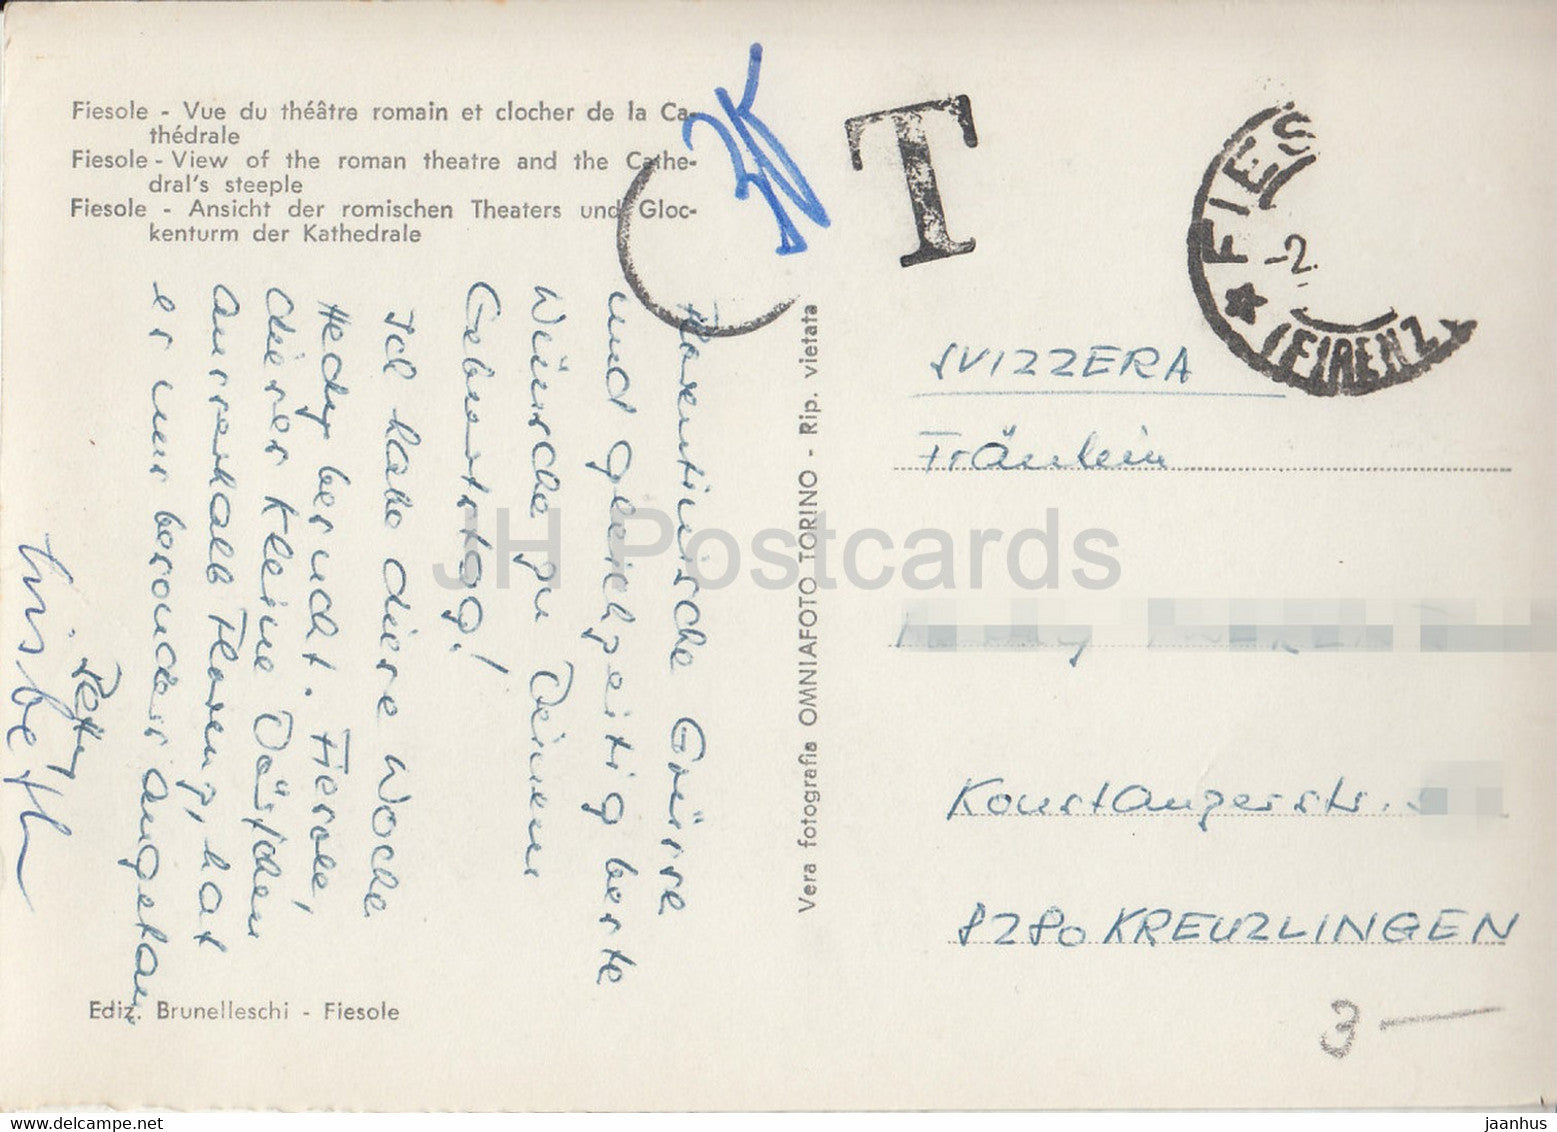 Fiesole - Vue du théâtre romain et clocher de la Ca-
thédrale
Fiesole - View of the roman theatre and the Cathe-
dral's steeple
Fiesole - Ansicht der romischen Theaters und Gloc-
kenturm der Kathedrale
T
FIES
-2.
(FIRENZ
Florentinische Grüsse
und gleichzeitig beste
Wünsche zu Deinem
Geburtstag!
Ich habe diese Woche
Hedy besucht. Fiesole,
dieses kleine Dörfchen
ausserhalb Florenz, hat
es mir besonders angetan.
Lisbeth
Vera fotografia OMNIAFOTO TORINO - Rip. vietata
SVIZZERA
Fräulein
Konstanzerstr.
8280 KREUZLINGEN
Ediz. Brunelleschi - Fiesole
3 —
JH Postcards
www.delcampe.net
jaanhus